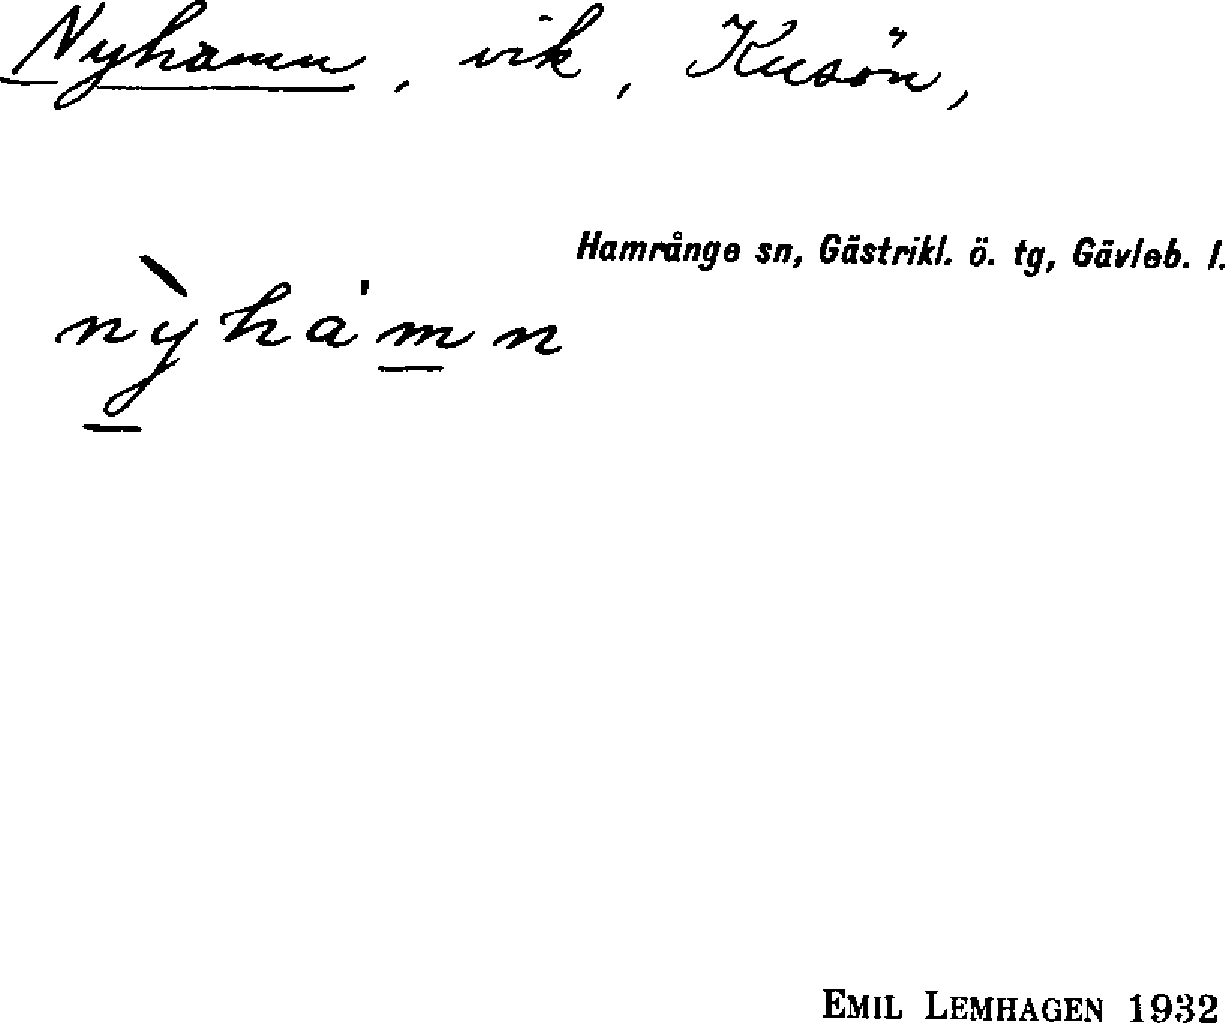 Nyhamn, vik, Kusön,
Hamrånge sn, Gästrikl. ö. tg, Gävleb. l.
nỳhamn
EMIL LEMHAGEN 1932